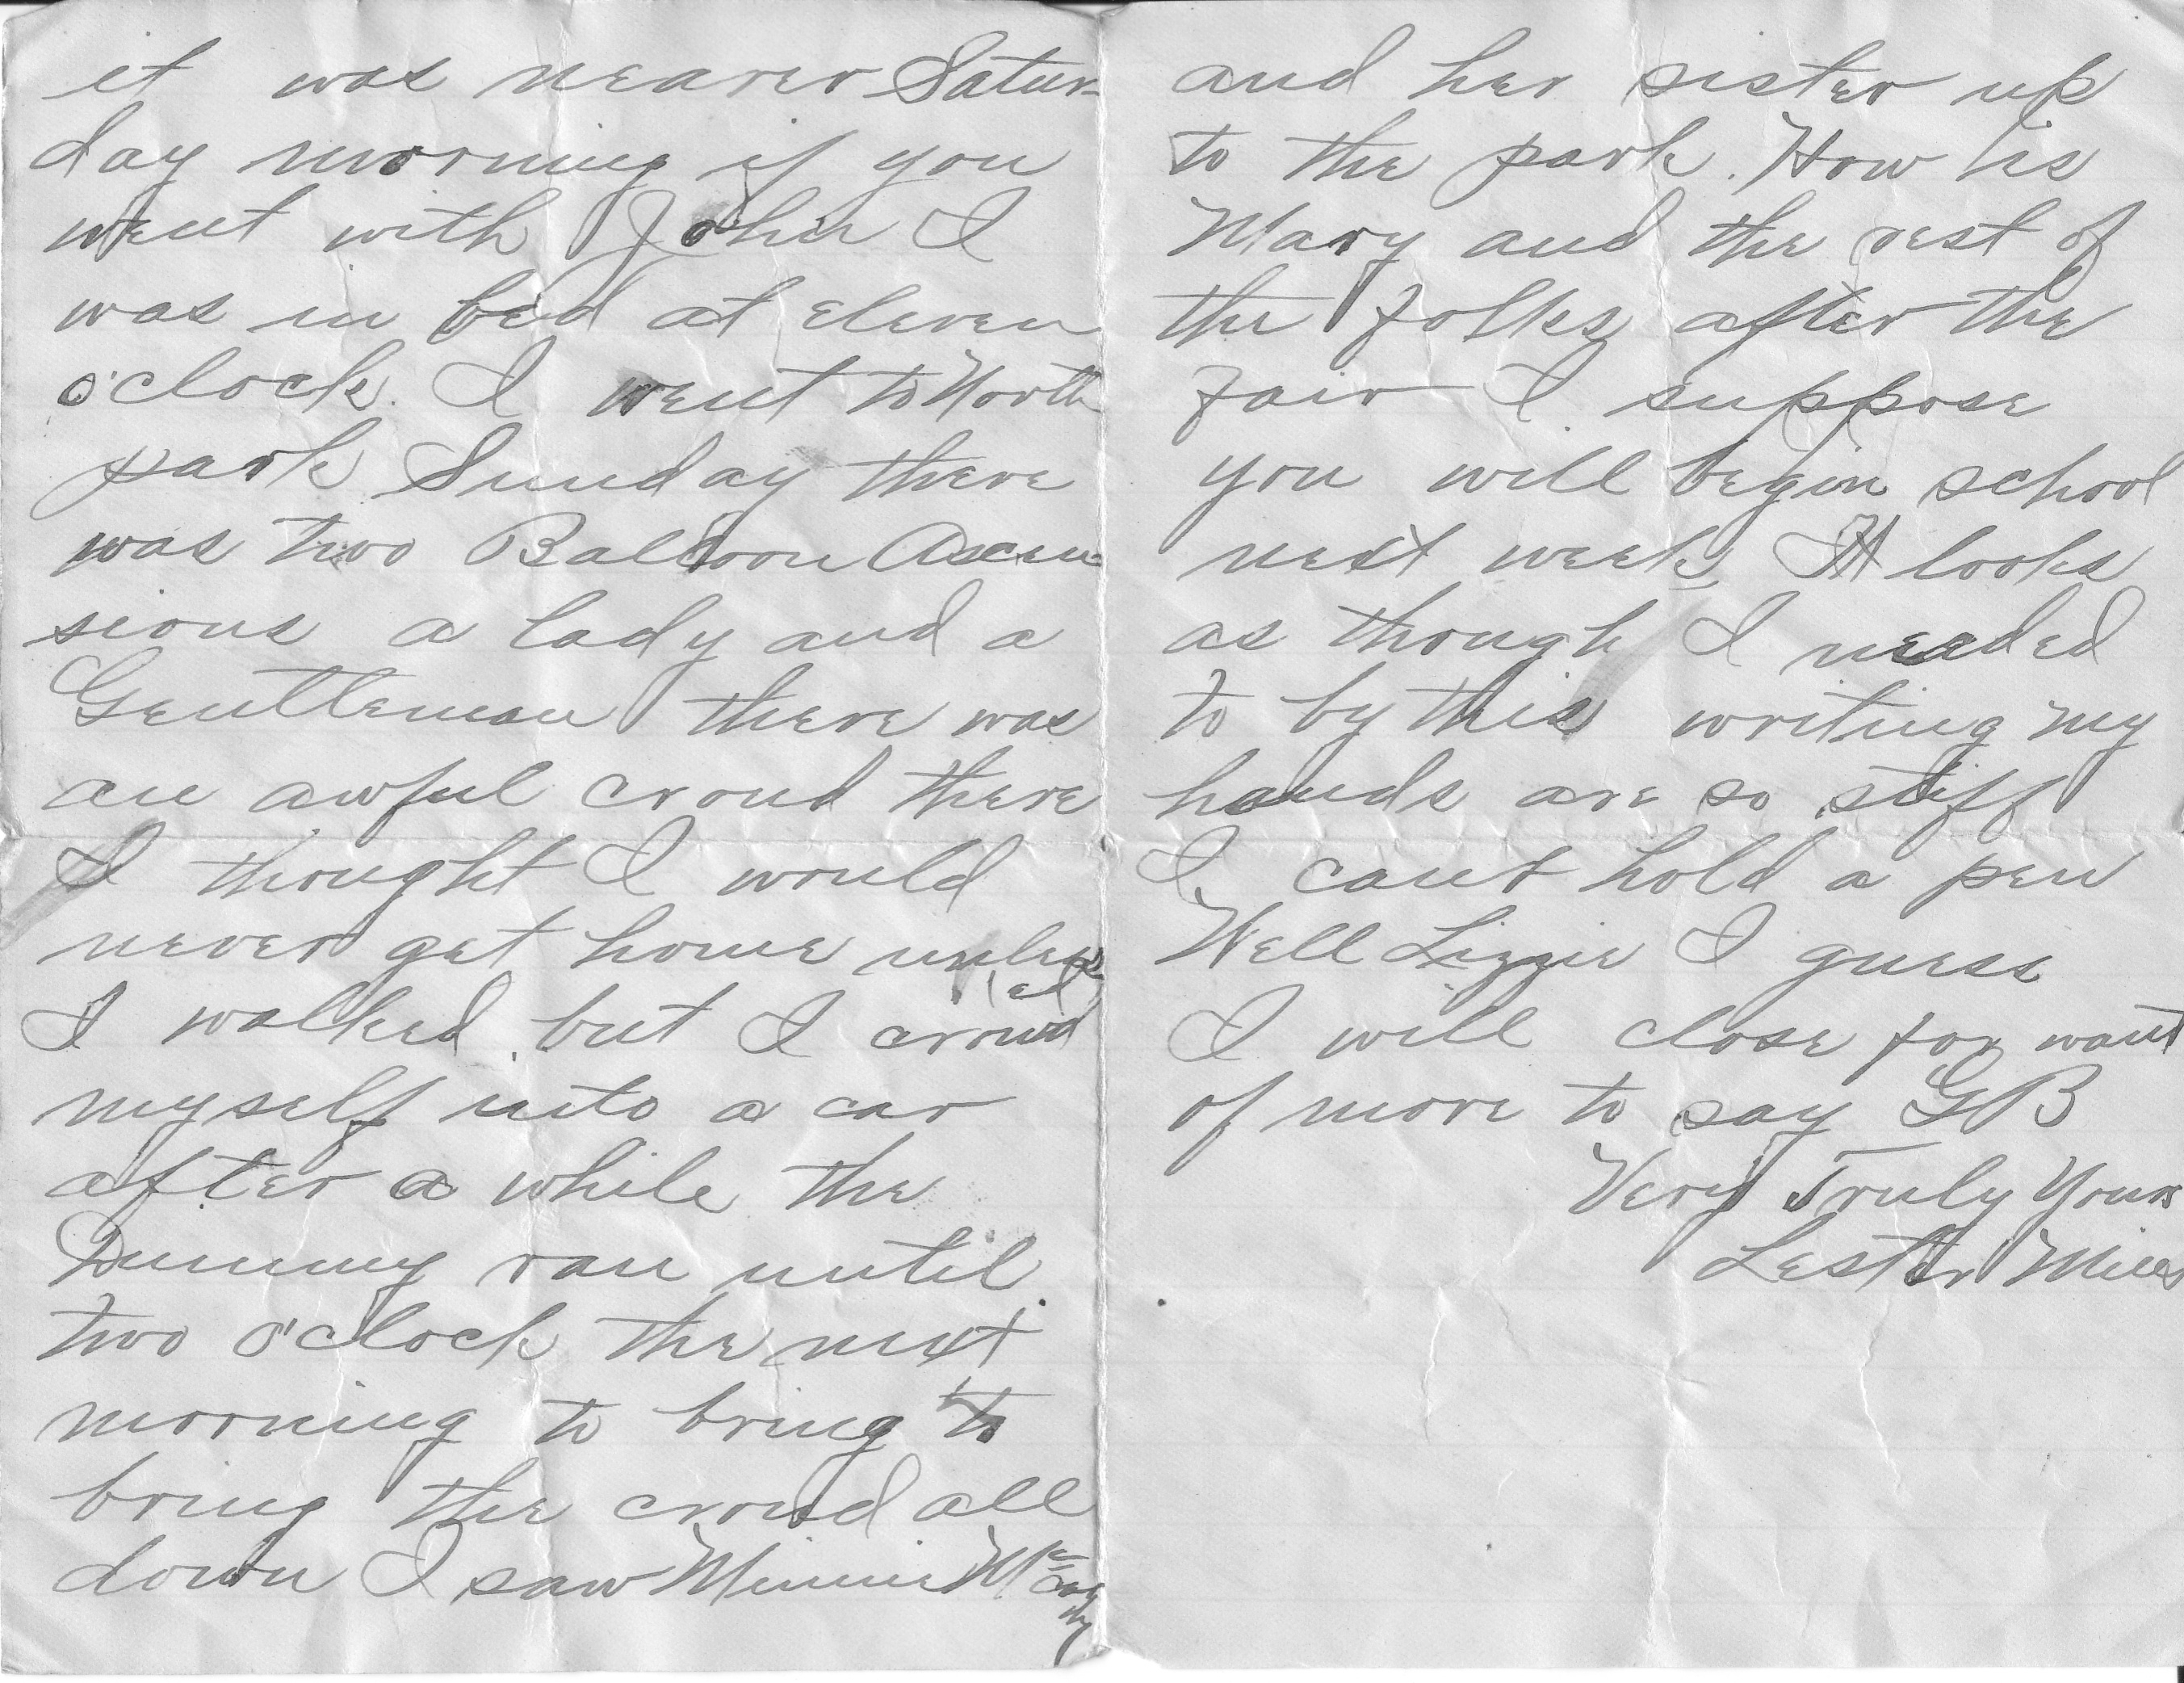 it was nearer Satur-
day morning if you
went with John I
was in bed at eleven
o'clock. I went to North
park Sunday there
was two Balloon Ascen-
sions a lady and a
Gentleman there was
an awful croud there
I thought I would
never get home unless
I walked but I croud ed
myself into a car
after a while the
Dummy ran until
two o'clock the next
morning to bring to
bring the croud all
down I saw Minnie
and her sister up
to the park. How is
Mary and the rest of
the folks after the
fair I suppose
you will begin school
next week It looks
as though I needed
to by this writing my
hands are so stiff
I cant hold a pen
Well Lizzie I guess
I will close for want
of more to say GB
Very Truly Yours
Lester Mills